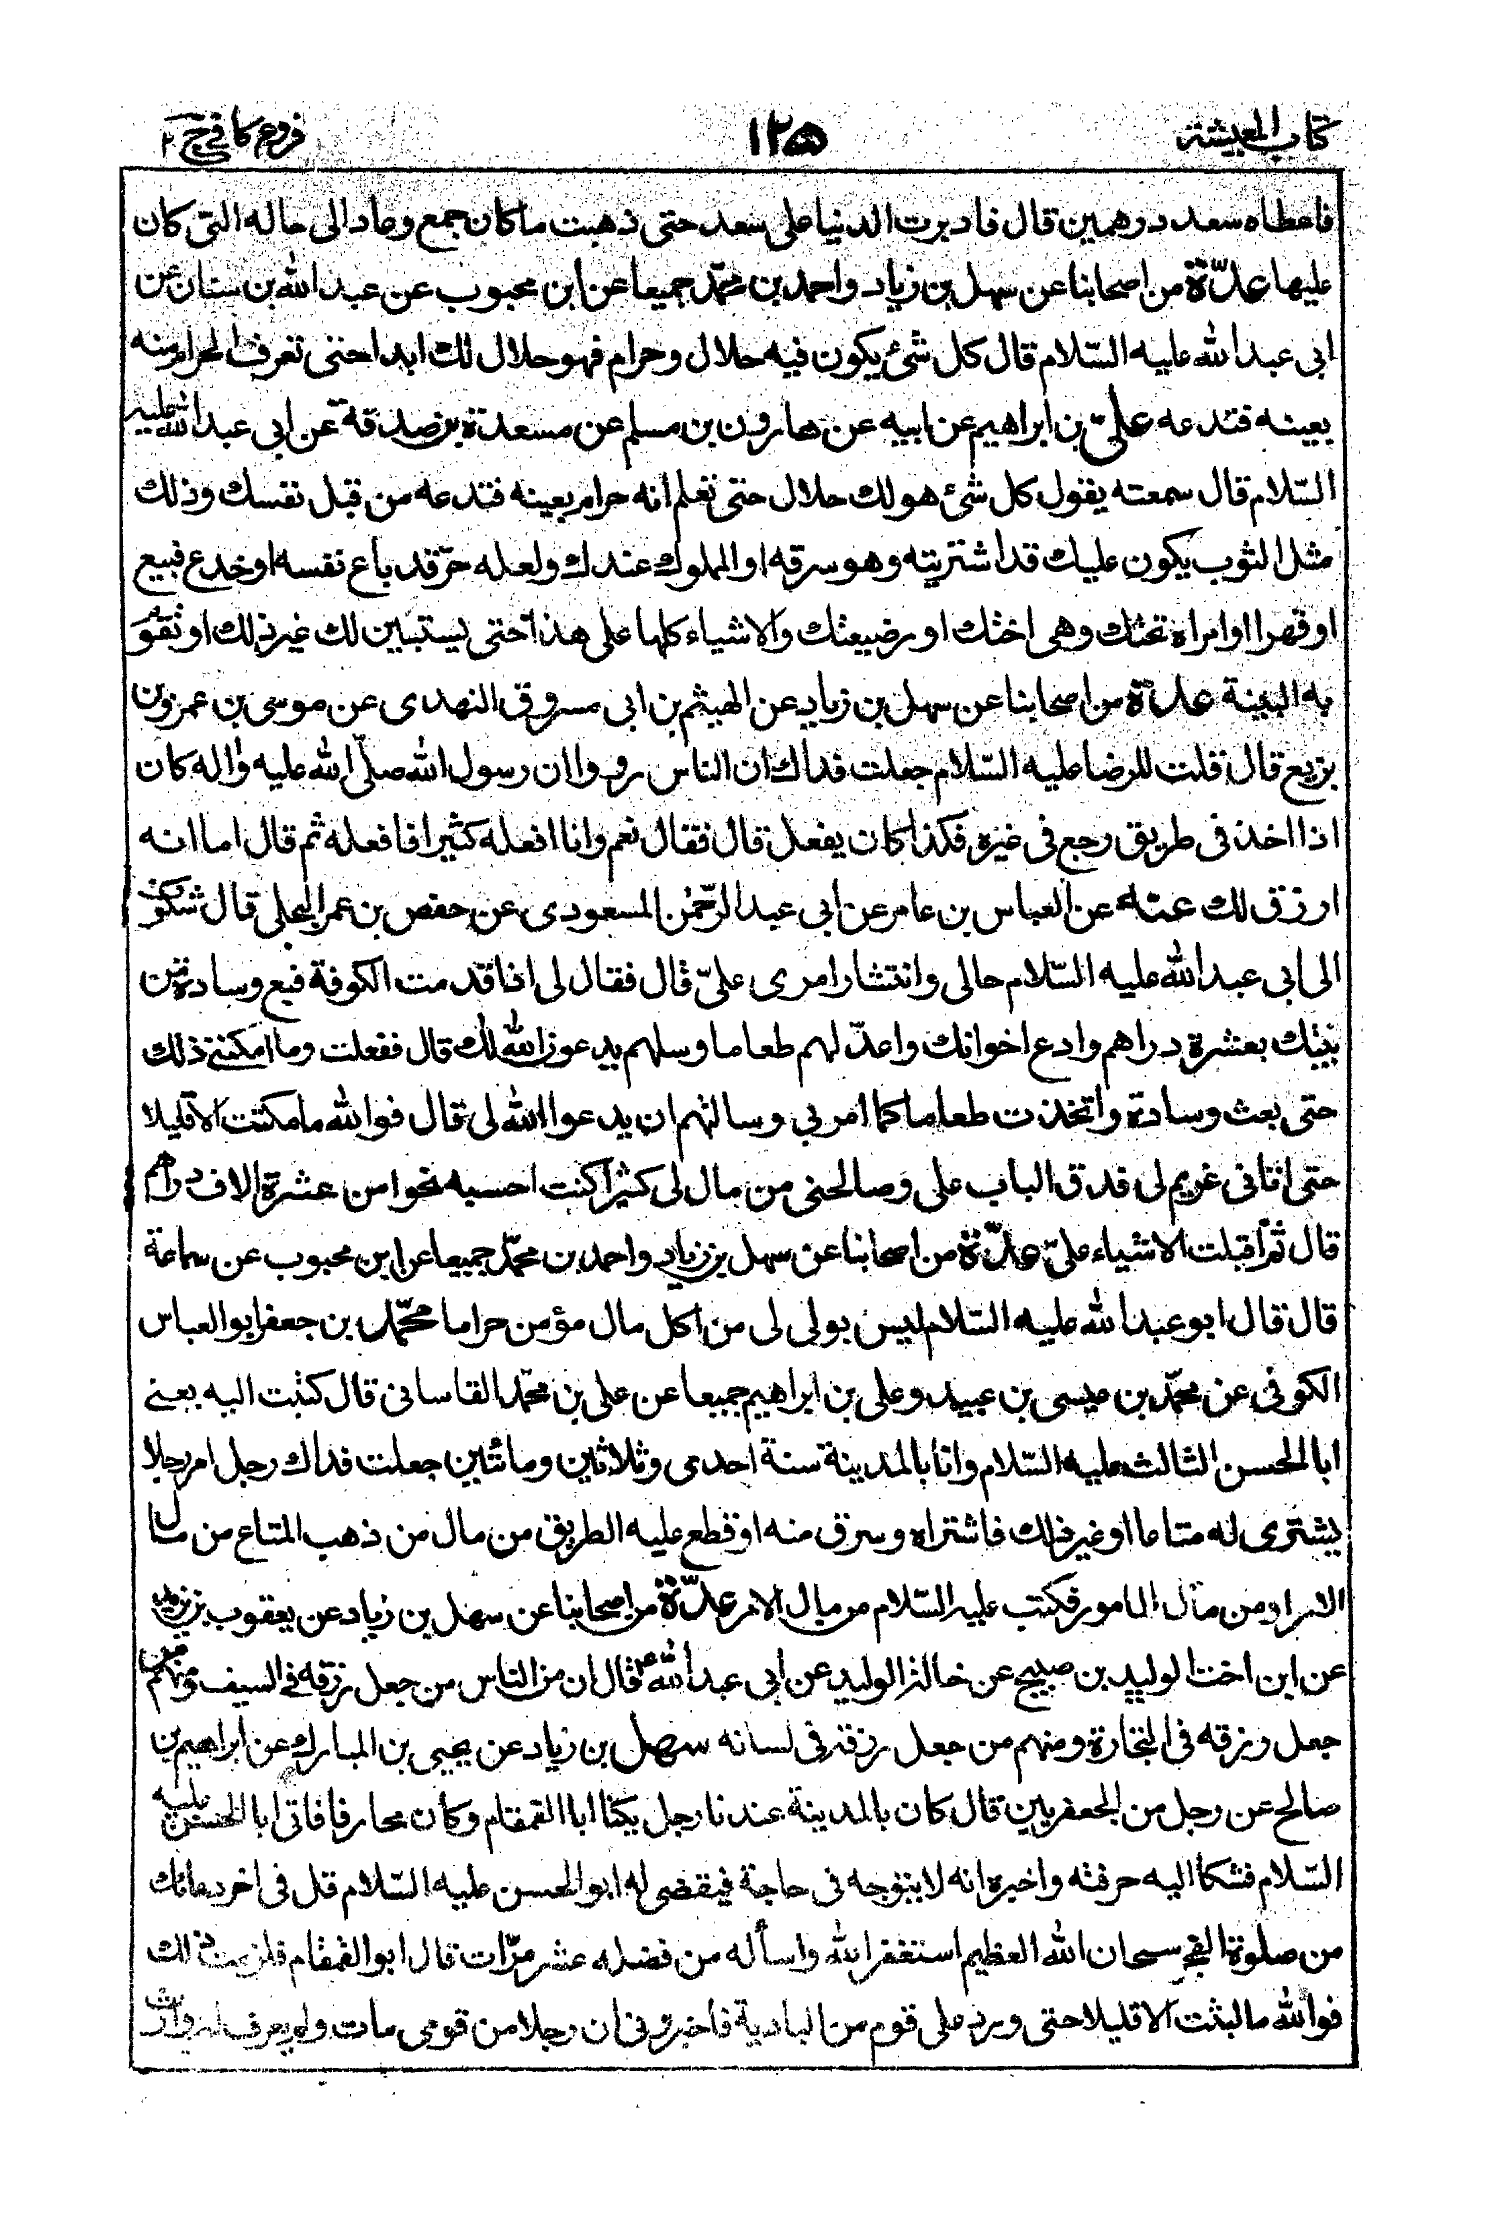 كتاب المعيشة ١٢٥ فروع كافي ج ٢
فاعطاه سعد درهمين قال فادبرت الدنيا على سعد حتى ذهبت ماكان جمع وعاد الى حاله التى كان
عليها عدّة من اصحابنا عن سهل بن زياد واحمد بن محمّد جميعا عن ابن محبوب عن عبد الله بن سنان عن
ابى عبد الله عليه السّلام قال كل شئ يكون فيه حلال وحرام فهو حلال لك ابدا حتى تعرف الحرام منه
بعينه فتدعه علىّ بن ابراهيم عن ابيه عن هارون بن مسلم عن مسعدة بن صدقة عن ابى عبد الله عليه
السّلام قال سمعته يقول كل شئ هو لك حلال حتى تعلم انه حرام بعينه فتدعه من قبل نفسك وذلك
مثل الثوب يكون عليك قد اشتريته وهو سرقه او المملوك عندك ولعله حرّ قد باع نفسه او خدع فبيع
او قهرا او امراه تحتك وهى اختك او رضيعتك والاشياء كلها على هذا حتى يستبين لك غير ذلك او تقوم
به البينة عدّة من اصحابنا عن سهل بن زياد عن الهيثم بن ابى مسروق النهدى عن موسى بن عمر بن
بزيع قال قلت للرضا عليه السّلام جعلت فداك ان الناس رووا ان رسول الله صلّى الله عليه واله كان
اذا اخذ فى طريق رجع فى غيره فكذا كان يفعل قال فقال نعم وانا افعله كثيرا فافعله ثم قال اما انه
ارزق لك عنه عن العباس بن عامر عن ابى عبد الرّحمن المسعودى عن حفص بن عمر البجلى قال شكوت
الى ابى عبد الله عليه السّلام حالى وانتشار امرى علىّ قال فقال لى اذا قدمت الكوفة فبع وسادة من
بيتك بعشرة دراهم وادع اخوانك واعدّ لهم طعاما وسلهم يدعون الله لك قال ففعلت وما امكننى ذلك
حتى بعت وسادة واتخذت طعاما كما امرنى وسالتهم ان يدعوا الله لى قال فوالله ما مكثت الا قليلا
حتى اتانى غريم لى فدق الباب على وصالحنى من مال لى كثيرا كنت احسبه نحوا من عشرة الاف دراهم
قال ثم اقبلت الاشياء علىّ عدّة من اصحابنا عن سهل بن زياد واحمد بن محمّد جميعا عن ابن محبوب عن سماعة
قال قال ابو عبد الله عليه السّلام ليس بولى لى من اكل مال مؤمن حراما محمّد بن جعفر ابو العباس
الكوفى عن محمّد بن عيسى بن عبيد وعلى بن ابراهيم جميعا عن على بن محمّد القاسانى قال كتبت اليه يعنى
ابا الحسن الثالث عليه السّلام وانا بالمدينة سنة احدى وثلاثين ومائتين جعلت فداك رجل امر رجلا
يشترى له متاعا او غير ذلك فاشتراه وسرق منه او قطع عليه الطريق من مال من ذهب المتاع من مال
الامر او من مال المامور فكتب عليه السّلام من مال الامر عدّة من اصحابنا عن سهل بن زياد عن يعقوب بن يزيد
عن ابن اخت الوليد بن صبيح عن خاله الوليد عن ابى عبد الله ع قال ان من الناس من جعل رزقه فى السيف ومنهم من
جعل رزقه فى التجارة ومنهم من جعل رزقه فى لسانه سهل بن زياد عن يحيى بن المبارك عن ابراهيم بن
صالح عن رجل من الجعفريين قال كان بالمدينة عندنا رجل يكنا ابا القمقام وكان محارفا فاتى ابا الحسن عليه
السّلام فشكا اليه حرفته واخبره انه لا يتوجه فى حاجة فيقضى له ابو الحسن عليه السّلام قل فى اخر دعائك
من صلوة الفجر سبحان الله العظيم استغفر الله واسأله من فضله عشر مرّات قال ابو القمقام فلزمت ذلك
فوالله ما لبثت الا قليلا حتى ورد على قوم من البادية فاخبرونى ان رجلا من قومى مات ولم يعرف له وارث